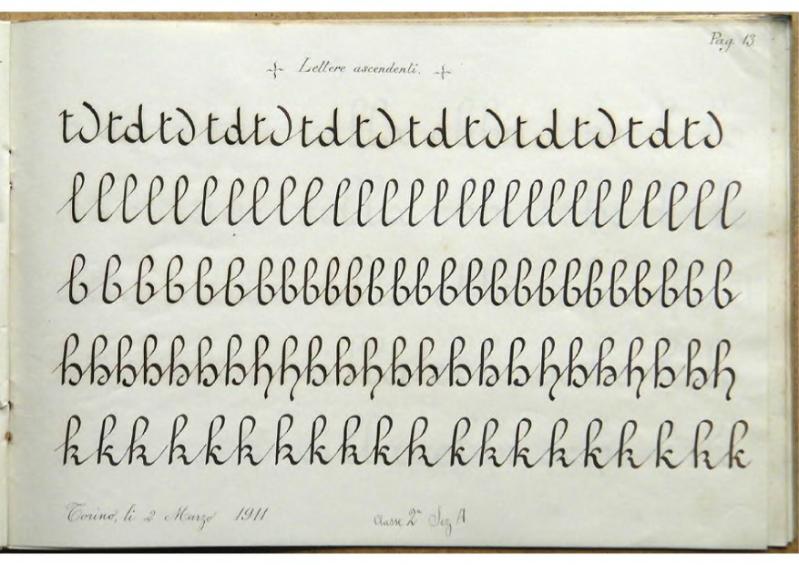 Pag. 13
Lettere ascendenti.
tdtdtdtdtdtdtdtdtdtdtdtdtd
lllllllllllllllllllllllllll
bbbbbbbbbbbbbbbbbbbbbbbbbb
hhhhhhhhhhhhhhhhhhhhhhhh
kkkkkkkkkkkkkkkkkkkk
Torino, li 2 Marzo 1911
Classe 2ª Sez A